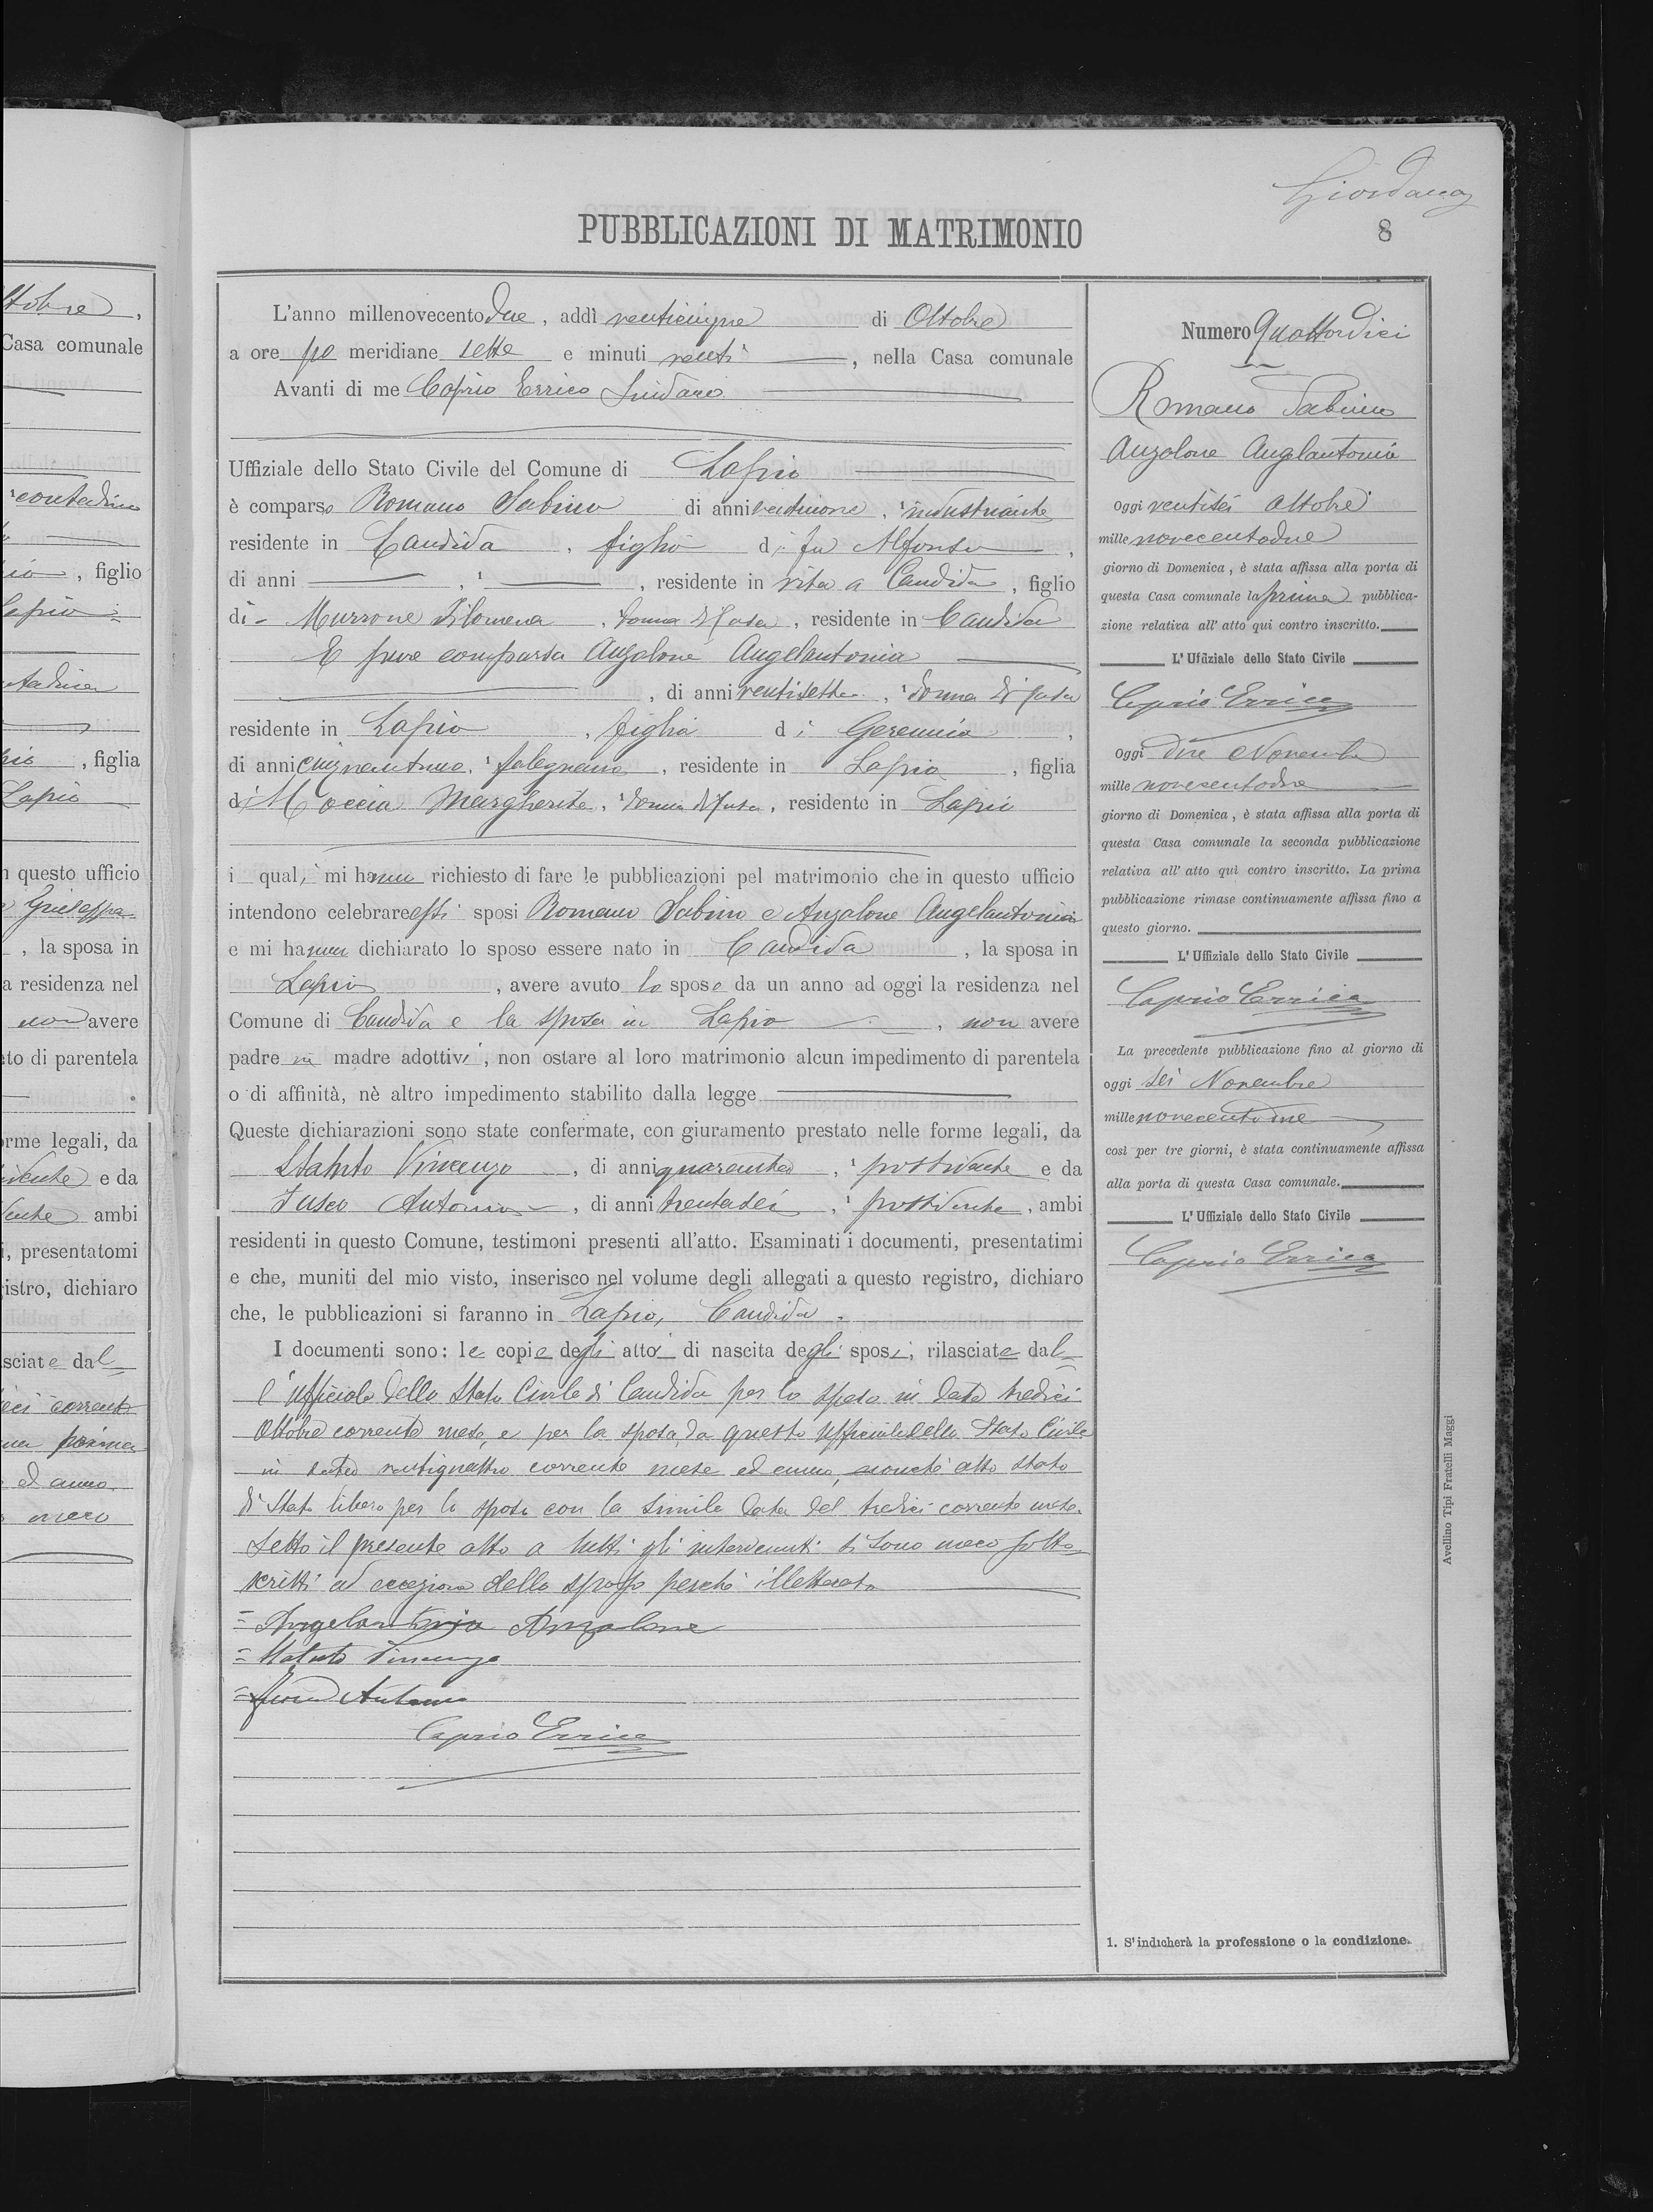 Giordano
PUBBLICAZIONI DI MATRIMONIO
8
ttobre,
Casa comunale
contadino
, figlio
Lapio
, figlia
Lapio
n questo ufficio
Giuseppa
, la sposa in
a residenza nel
non avere
nto di parentela
orme legali, da
e da
ambi
i, presentatomi
istro, dichiaro
sciate dal
corrente
prima
ed anno
meco
L'anno millenovecento due, addì venticinque di Ottobre
a ore po meridiane sette e minuti venti, nella Casa comunale
Avanti di me Caprio Errico Sindaco
Uffiziale dello Stato Civile del Comune di Lapio
è comparso Romano Sabino di anni ventinove, ¹ industriante
residente in Candida, figlio di fu Alfonso,
di anni , ¹ , residente in vita a Candida, figlio
di - Murrone Filomena, donna di casa, residente in Candida
E pure comparsa Anzalone Angelantonia
, di anni ventisette, ¹ donna di casa
residente in Lapio, figlia di Geremia,
di anni cinquantuno, ¹ falegname, residente in Lapio, figlia
di Moccia Margherita, ¹ donna di casa, residente in Lapio
i quali mi hanno richiesto di fare le pubblicazioni pel matrimonio che in questo ufficio
intendono celebrare essi sposi Romano Sabino e Anzalone Angelantonia
e mi hanno dichiarato lo sposo essere nato in Candida, la sposa in
Lapio, avere avuto lo sposo da un anno ad oggi la residenza nel
Comune di Candida e la sposa in Lapio, non avere
padre nè madre adottivi, non ostare al loro matrimonio alcun impedimento di parentela
o di affinità, nè altro impedimento stabilito dalla legge
Queste dichiarazioni sono state confermate, con giuramento prestato nelle forme legali, da
Statuto Vincenzo, di anni quaranta, ¹ possidente e da
Fusco Antonio, di anni trentasei, ¹ possidente, ambi
residenti in questo Comune, testimoni presenti all'atto. Esaminati i documenti, presentatimi
e che, muniti del mio visto, inserisco nel volume degli allegati a questo registro, dichiaro
che, le pubblicazioni si faranno in Lapio, Candida.
I documenti sono: le copie degli atti di nascita degli sposi, rilasciate dal
l'Ufficiale dello Stato Civile di Candida per lo sposo in data tredici
Ottobre corrente mese, e per la sposa, da questo Ufficiale dello Stato Civile
in data ventiquattro corrente mese ed anno, nonchè atto stato
di Stato libero per lo sposo con la simile data del tredici corrente mese.
Letto il presente atto a tutti gli intervenuti si sono meco sotto
scritti ad eccezione dello sposo perchè illetterato
= Angelantonia Anzalone
= Statuto Vincenzo
= Fusco Antonio
Caprio Errico
Numero Quattordici
Romano Sabino
Anzalone Angelantonia
Oggi ventisei Ottobre
mille novecentodue
giorno di Domenica, è stata affissa alla porta di
questa Casa comunale la prima pubblica-
zione relativa all' atto qui contro inscritto.
L' Uffiziale dello Stato Civile
Caprio Errico
Oggi due Novembre
mille novecentodue
giorno di Domenica, è stata affissa alla porta di
questa Casa comunale la seconda pubblicazione
relativa all' atto quì contro inscritto. La prima
pubblicazione rimase continuamente affissa fino a
questo giorno.
L' Uffiziale dello Stato Civile
Caprio Errico
La precedente pubblicazione fino al giorno di
oggi sei Novembre
mille novecentodue
così per tre giorni, è stata continuamente affissa
alla porta di questa Casa comunale.
L' Uffiziale dello Stato Civile
Caprio Errico
1. S'indicherà la professione o la condizione.
Avellino Tipi Fratelli Maggi